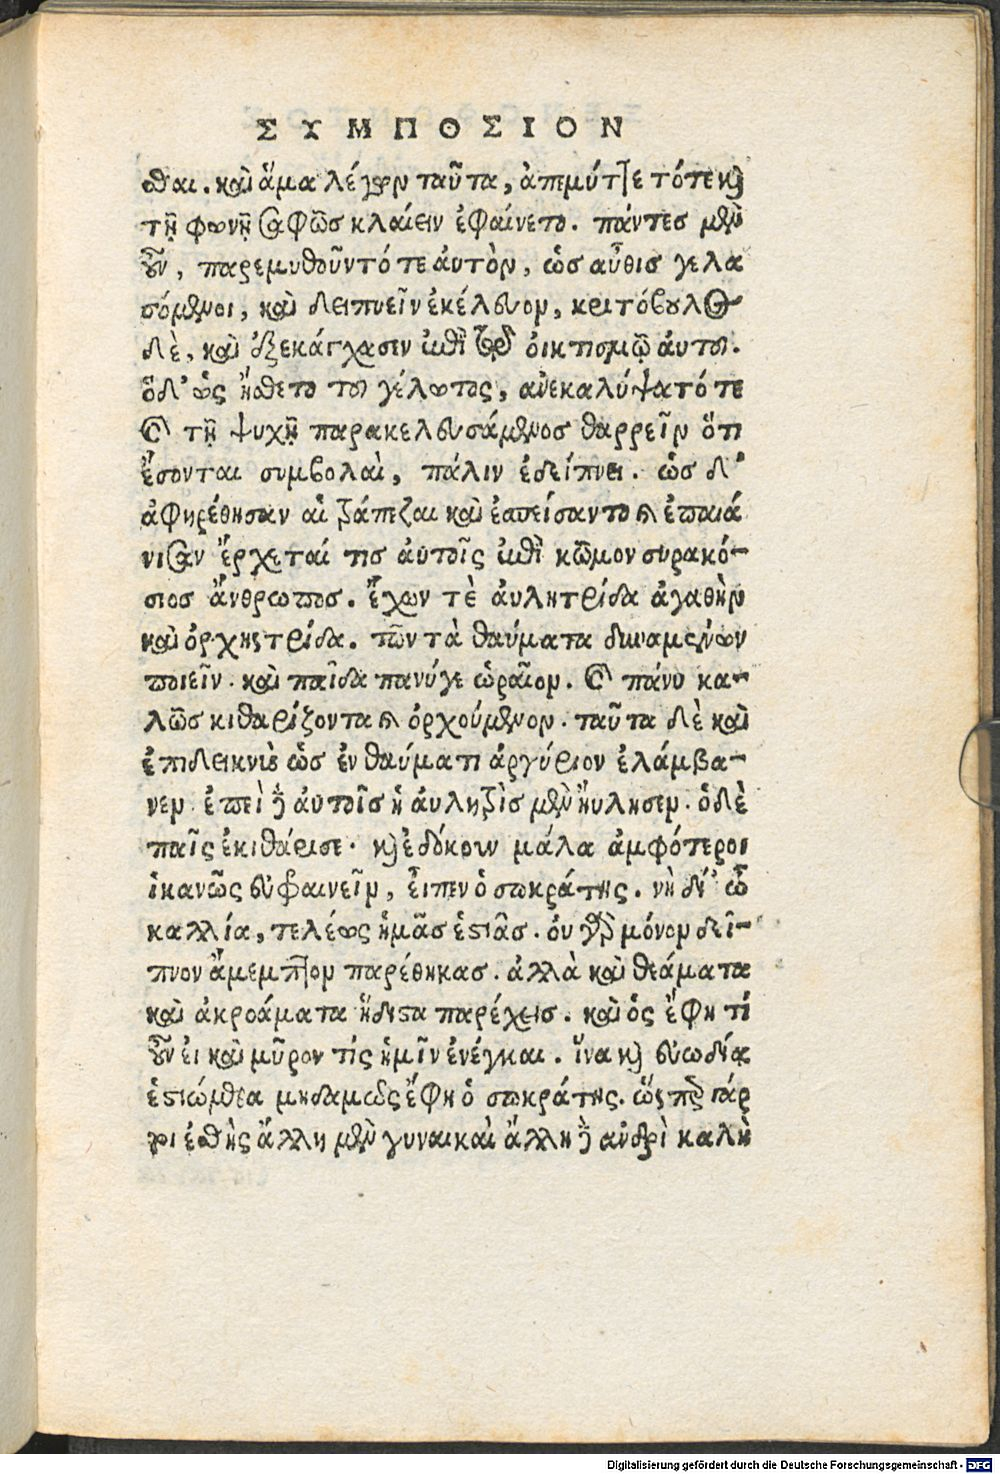 ΣΥΜΠΟΣΙΟΝ
σθαι. καὶ ἅμα λέγων ταῦτα, ἀπεμύττετό τε κὶ
τῇ φωνῇ σαφῶσ κλαίειν ἐφαίνετο. πάντεσ μὲν
οὖν, παρεμυθοῦντό τε ἀυτὸν, ὡσ αὖθισ γελα
σόμενοι, καὶ δειπνεῖν ἐκέλευον, κριτόβουλος
δὲ, καὶ ἐξεκάγχασεν ἐπὶ τῷ οἰκτισμῷ ἀυτοῦ.
ὅδ' ὡς ᾔσθετο τοῦ γέλωτος, ἀνεκαλύψατό τε
καὶ τῇ ψυχῇ παρακελευσάμενοσ θαρρεῖν ὅτι
ἔσονται συμβολαὶ, πάλιν ἐδείπνει. ὡσ δ'
ἀφῃρέθησαν αἱ τράπεζαι καὶ ἐσπείσαντο καὶ ἐπαιά
νισαν ἔρχεταί τισ ἀυτοῖς ἐπὶ κῶμον συρακό-
σιοσ ἄνθρωποσ. ἔχων τὲ ἀυλητρίδα ἀγαθὴν
καὶ ὀρχηστρίδα. τῶν τὰ θαύματα δυναμένων
ποιεῖν. καὶ παῖδα πανύγε ὡραῖον. καὶ πάνυ κα-
λῶσ κιθαρίζοντα καὶ ὀρχούμενον. ταῦτα δὲ καὶ
ἐπιδεικνὺσ ὡσ ἐν θαύματι ἀργύριον ἐλάμβα-
νεν. ἐπεὶ δὲ ἀυτοῖσ ἡ ἀυλητρὶσ μὲν ἤυλησεν. ὁδὲ
παῖς ἐκιθάρισε. κὶ ἐδόκουν μάλα ἀμφότεροι
ἱκανῶς εὐφραινεῖν, ἔιπεν ὁ σωκράτης. νὴ δί' ὦ
καλλία, τελέως ἡμᾶσ ἑστιᾶσ. ὀυ γὰρ μόνον δεῖ-
πνον ἄμεμπτον παρέθηκασ. ἀλλὰ καὶ θεάματα
καὶ ἀκροάματα ἥδιστα παρέχεισ. καὶ ὃς ἔφη τί
οὖν ἐι καὶ μῦρον τίς ἡμῖν ἐνέγκαι. ἵνα κὶ εὐωδίᾳ
ἑστιώμεθα μηδαμῶς ἔφη ὁ σωκράτης. ὥσπερ γάρ
τοι ἐσθὴς ἄλλη μὲν γυναικὶ ἄλλη δὲ ἀνδρὶ καλὴ
Digitalisierung gefördert durch die Deutsche Forschungsgemeinschaft - DFG